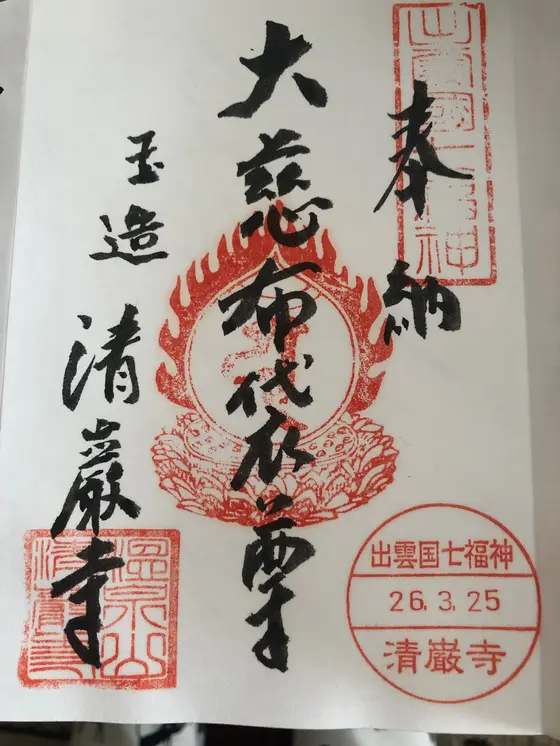 出雲國七福神
奉納
大慈布袋尊
玉造
清巌寺
出雲国七福神
26.3.25
清巌寺